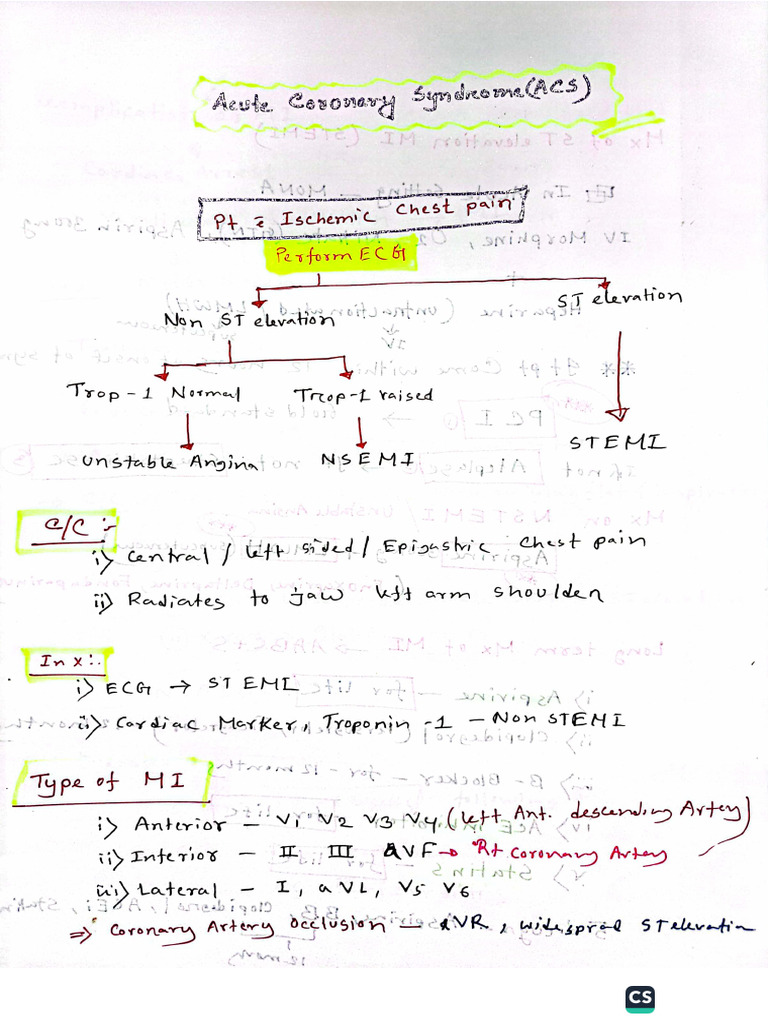 Acute Coronary Syndrome (ACS)
Pt c̄ Ischemic chest pain.
Perform ECG
Non ST elevation
ST elevation
Trop-1 Normal
Trop-1 raised
Unstable Angina
NSEMI
STEMI
C/C :-
i> Central / left sided / Epigastric chest pain
ii> Radiates to jaw left arm shoulder
Inx:.
i> ECG → STEMI
ii> Cardiac Marker, Troponin -1 - Non STEMI
Type of MI
i> Anterior - V1 V2 V3 V4 (left Ant. descending Artery)
ii> Inferior - II III AVF → Rt coronary Artery
iii> Lateral - I, aVL, V5 V6
⇒ Coronary Artery occlusion - aVR, widespred ST elevation
CS